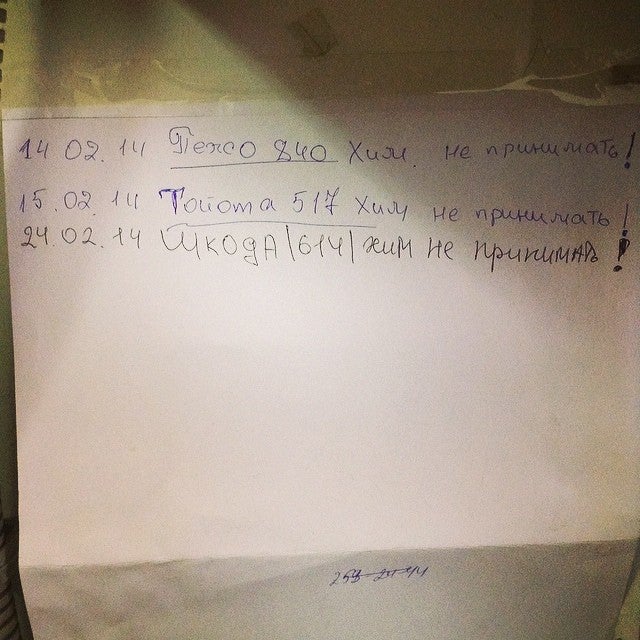 14 02. 14 Пежо 840 Хим. не принимать!
15. 02. 14 Тойота 517 Хим не принимать!
24. 02. 14 ШКОДА |614| хим не принимать!